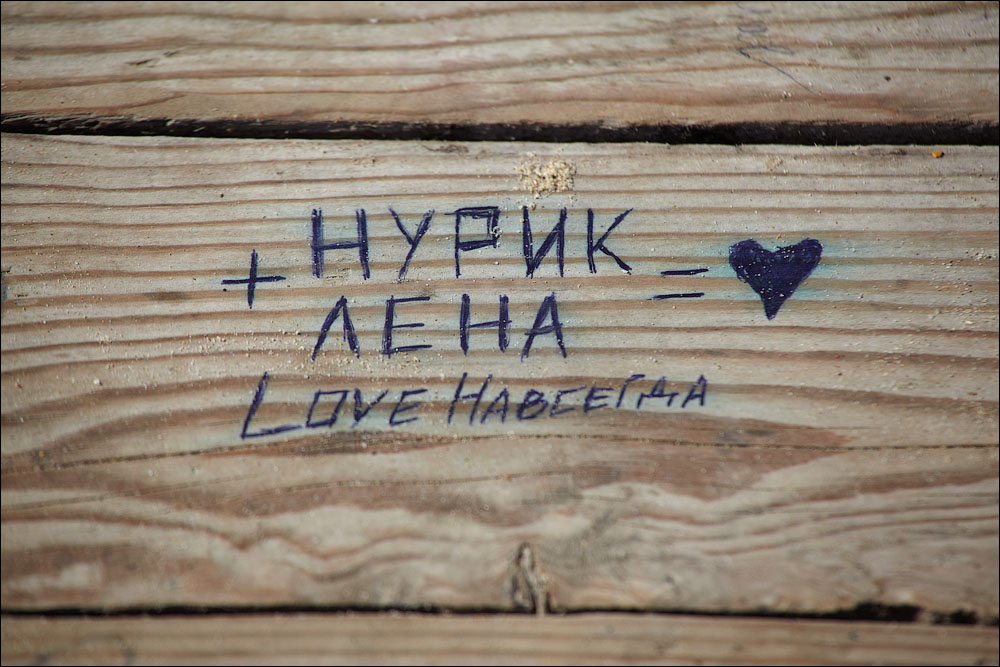 НУРИК
+ =
ЛЕНА
LOVE НАВСЕГДА